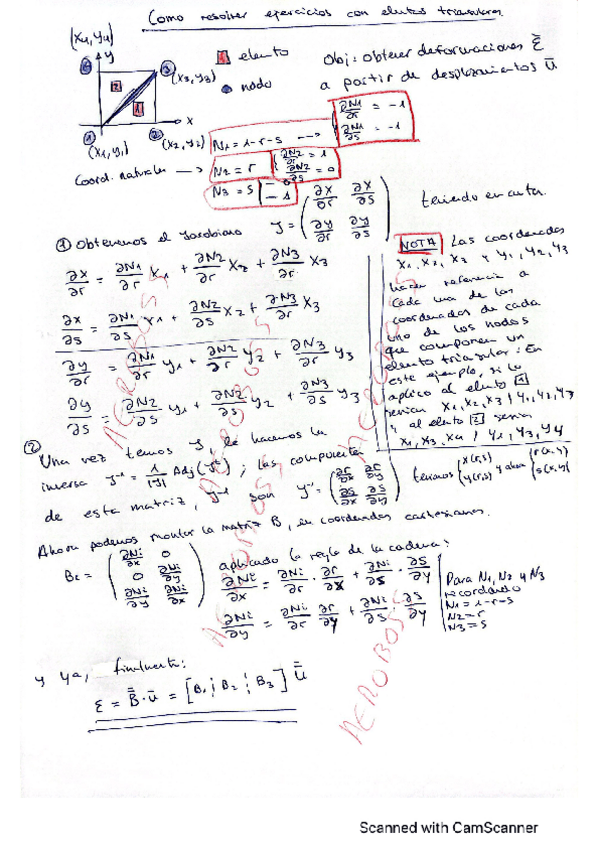 Como resolver ejercicios con elentos triangulares
(x4, y4)
y
elento
nodo
Obj: obtener deformaciones ε̄
a partir de desplazamientos ū
(x3, y3)
2
1
x
(x1, y1)
(x2, y2)
Coord. naturales →
N1 = 1-r-s → ∂N1/∂r = -1
∂N1/∂s = -1
N2 = r ∂N2/∂r = 1
∂N2/∂s = 0
N3 = s - 0
- 1
① Obtenemos el Jacobiano J = (∂x/∂r ∂x/∂s
∂y/∂r ∂y/∂s) teniendo en cuenta.
∂x/∂r = ∂N1/∂r x1 + ∂N2/∂r x2 + ∂N3/∂r x3
∂x/∂s = ∂N1/∂s x1 + ∂N2/∂s x2 + ∂N3/∂s x3
∂y/∂r = ∂N1/∂r y1 + ∂N2/∂r y2 + ∂N3/∂r y3
∂y/∂s = ∂N2/∂s y1 + ∂N2/∂s y2 + ∂N3/∂s y3
NOTA Las coordenadas
x1, x2, x3 y y1, y2, y3
hacen referencia a
cada una de las
coordenadas de cada
uno de los nodos
que componen un
elento triangular: En
este ejemplo, si lo
aplico al elento 1
serian x1, x2, x3 / y1, y2, y3
y al elento 2 seria
x1, x3, x4 / y1, y3, y4
② Una vez temos J, le hacemos la
inversa J⁻¹ = 1/|J| Adj(Jᵗ); las componentes
de esta matriz, J⁻¹ son J⁻¹ = (∂r/∂x ∂r/∂y
∂s/∂x ∂s/∂y) teniamos x(r,s)
y(r,s) y ahora r(x,y)
s(x,y)
Ahora podemos montar la matriz B, en coordenadas cartesianas.
Bi = (∂Ni/∂x 0
0 ∂Ni/∂y
∂Ni/∂y ∂Ni/∂x)
aplicando la regla de la cadena:
∂Ni/∂x = ∂Ni/∂r · ∂r/∂x + ∂Ni/∂s · ∂s/∂y
∂Ni/∂y = ∂Ni/∂r ∂r/∂y + ∂Ni/∂s · ∂s/∂y
Para N1, N2 y N3
recordando
N1 = 1-r-s
N2 = r
N3 = s
y ya, finalmente:
ε = B̄ · ū = [B1 ¦ B2 ¦ B3] ū
AEROBOSS
AEROBOSS
AEROBOSS
AEROBOSS
AEROBOSS
Scanned with CamScanner